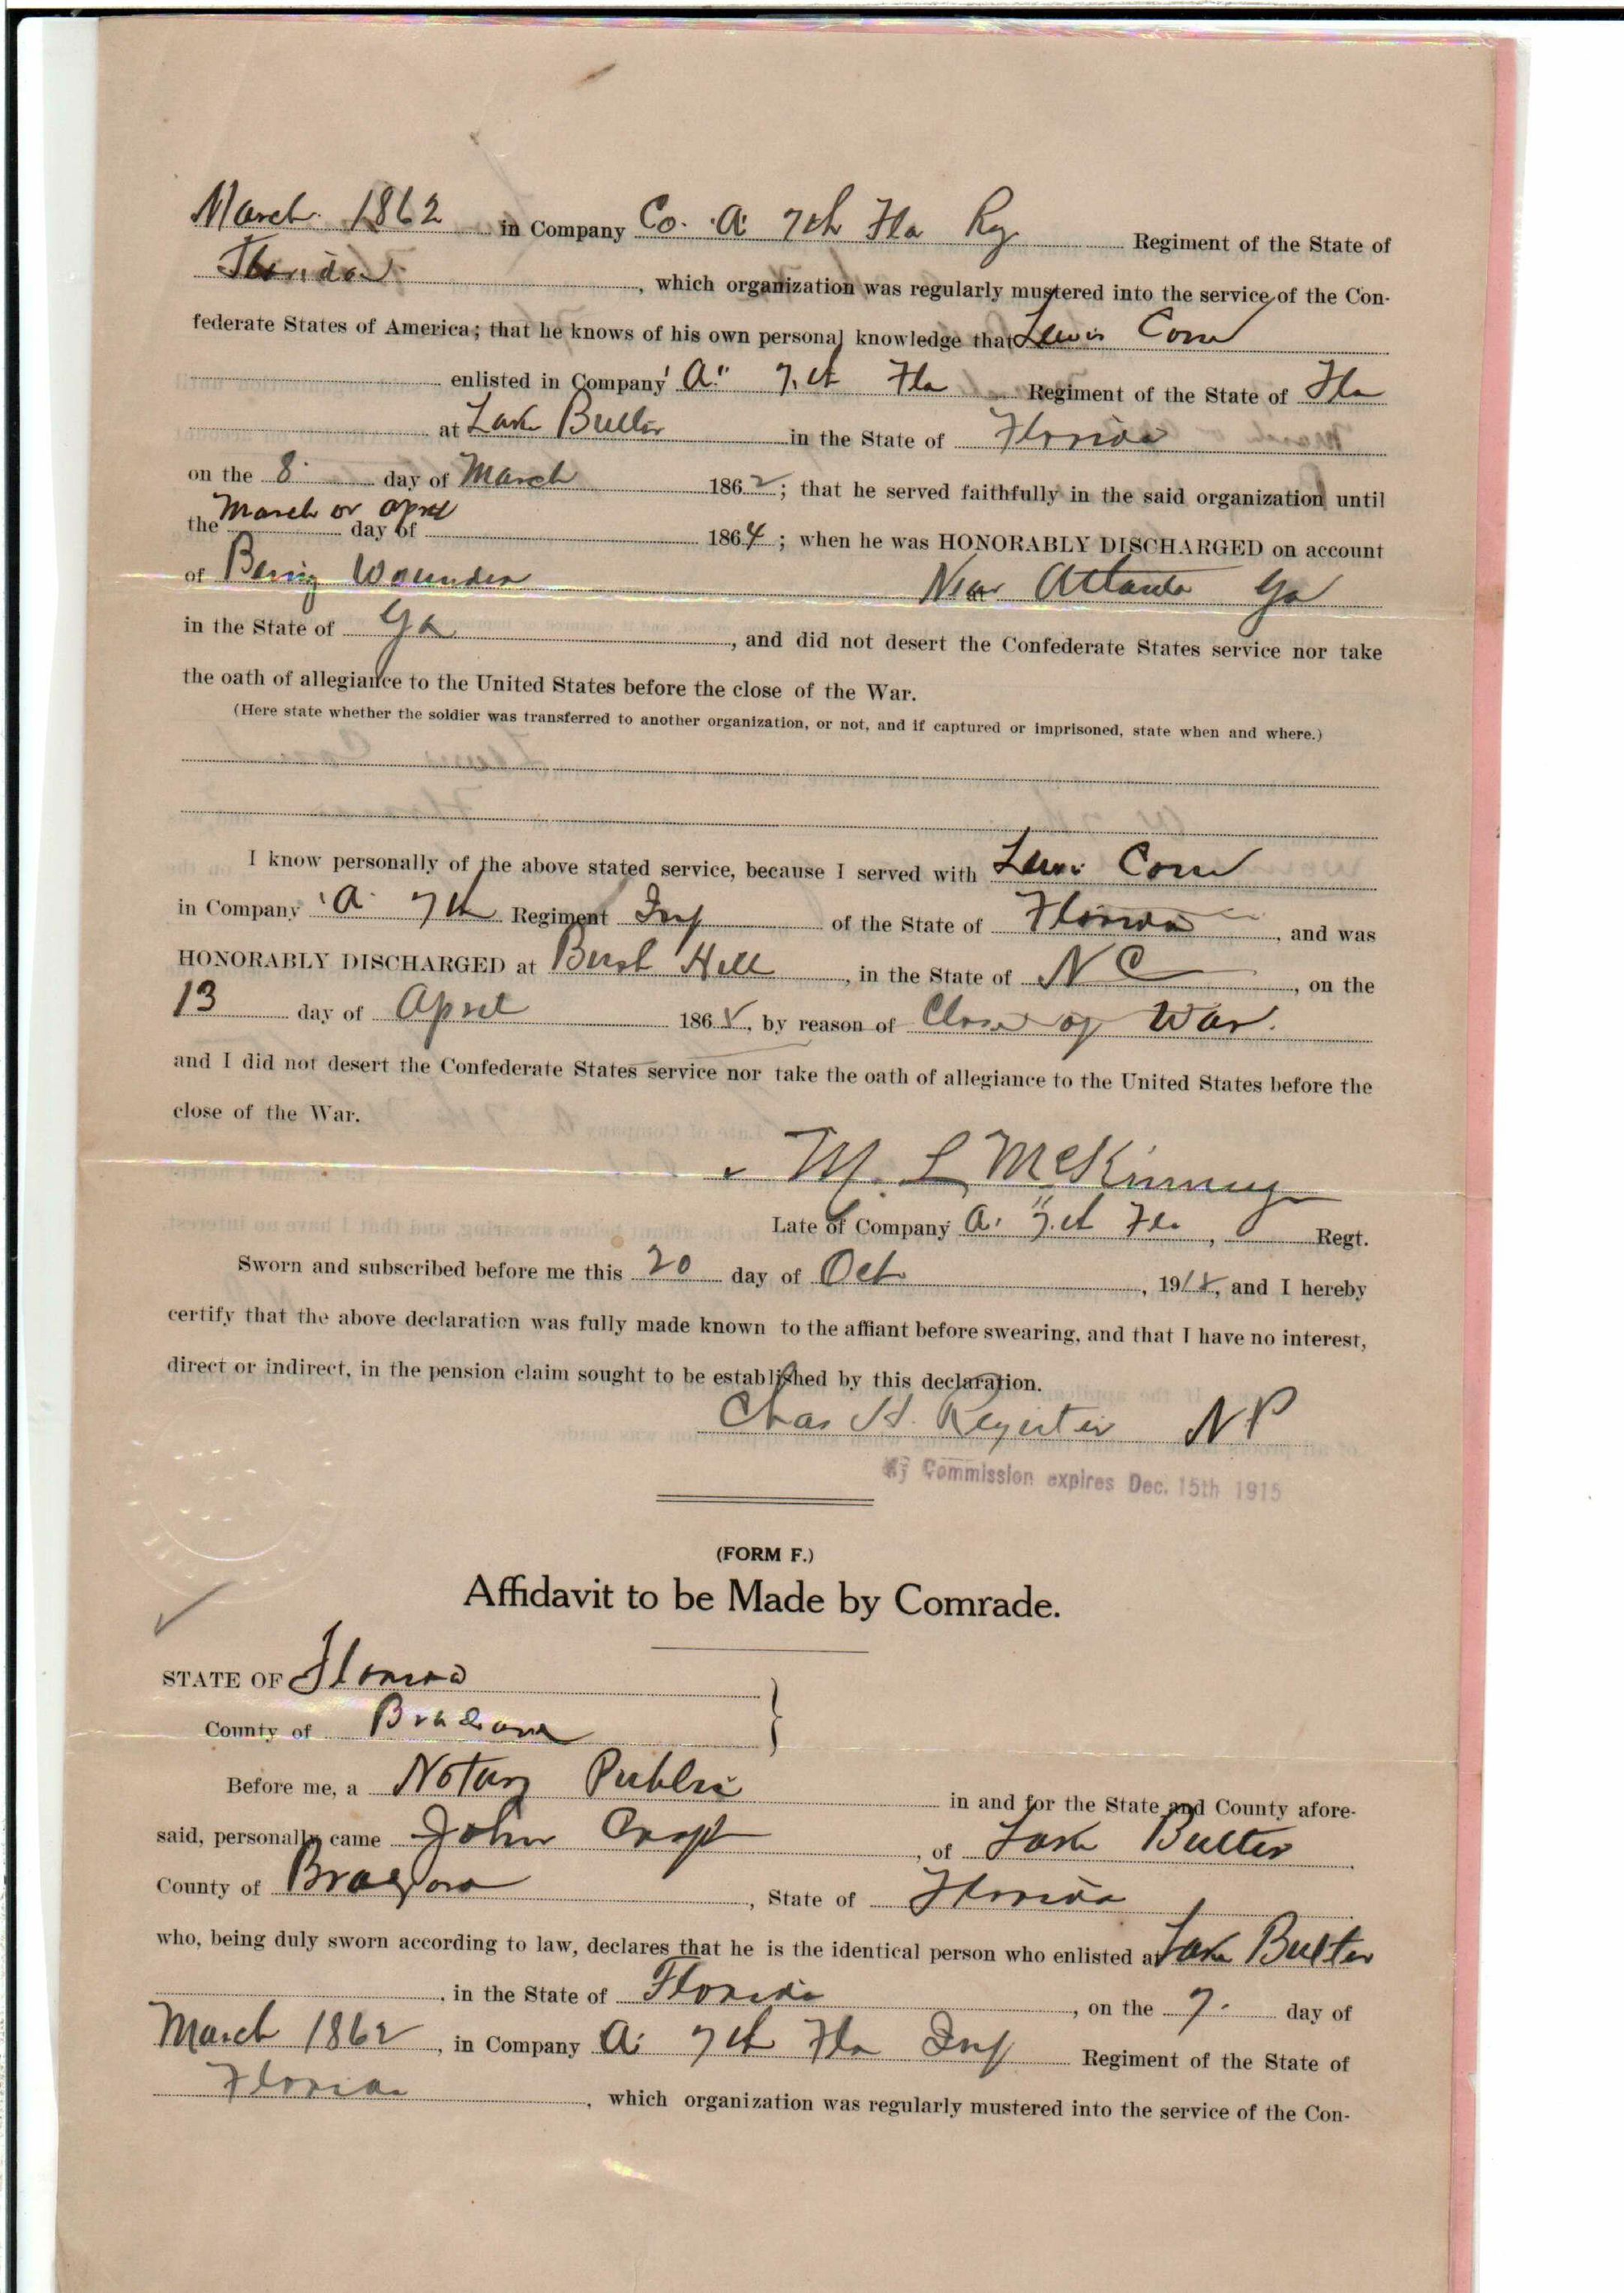 March 1862 in Company Co. "A" 7th Fla Rg Regiment of the State of
Florida, which organization was regularly mustered into the service of the Con-
federate States of America; that he knows of his own personal knowledge that Lewis
enlisted in Company "A" 7th Fla Regiment of the State of Fla
at Lake Butler in the State of Florida
on the 8 day of March 1862; that he served faithfully in the said organization until
the March or April day of 1864; when he was HONORABLY DISCHARGED on account
of Being Wounded Near Atlanta Ga
in the State of Ga, and did not desert the Confederate States service nor take
the oath of allegiance to the United States before the close of the War.
(Here state whether the soldier was transferred to another organization, or not, and if captured or imprisoned, state when and where.)
I know personally of the above stated service, because I served with Lewis
in Company "A" 7th Regiment Inf of the State of Florida, and was
HONORABLY DISCHARGED at Bush Hill, in the State of N C, on the
13 day of April 1865, by reason of Close of War.
and I did not desert the Confederate States service nor take the oath of allegiance to the United States before the
close of the War.
M. L McKinney
Late of Company A. 7th Fla, Regt.
Sworn and subscribed before me this 20 day of Oct, 191, and I hereby
certify that the above declaration was fully made known to the affiant before swearing, and that I have no interest,
direct or indirect, in the pension claim sought to be established by this declaration.
Chas H. Register N P
My Commission expires Dec. 15th 1915
(FORM F.)
Affidavit to be Made by Comrade.
STATE OF Florida
County of Bradford
Before me, a Notary Public in and for the State and County afore-
said, personally came John, of Lake Butler
County of Bradford, State of Florida
who, being duly sworn according to law, declares that he is the identical person who enlisted at Lake Butler
, in the State of Florida, on the 7. day of
March 1862, in Company A. 7th Fla Inf Regiment of the State of
Florida, which organization was regularly mustered into the service of the Con-